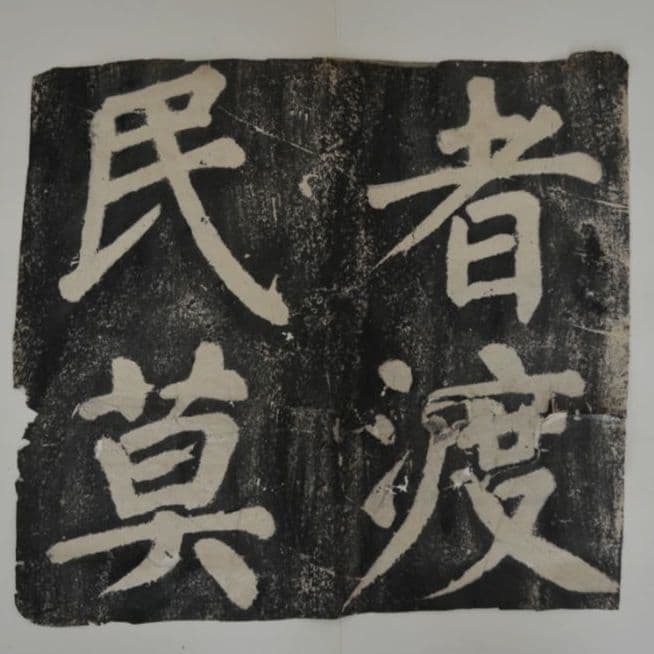 者渡
民莫